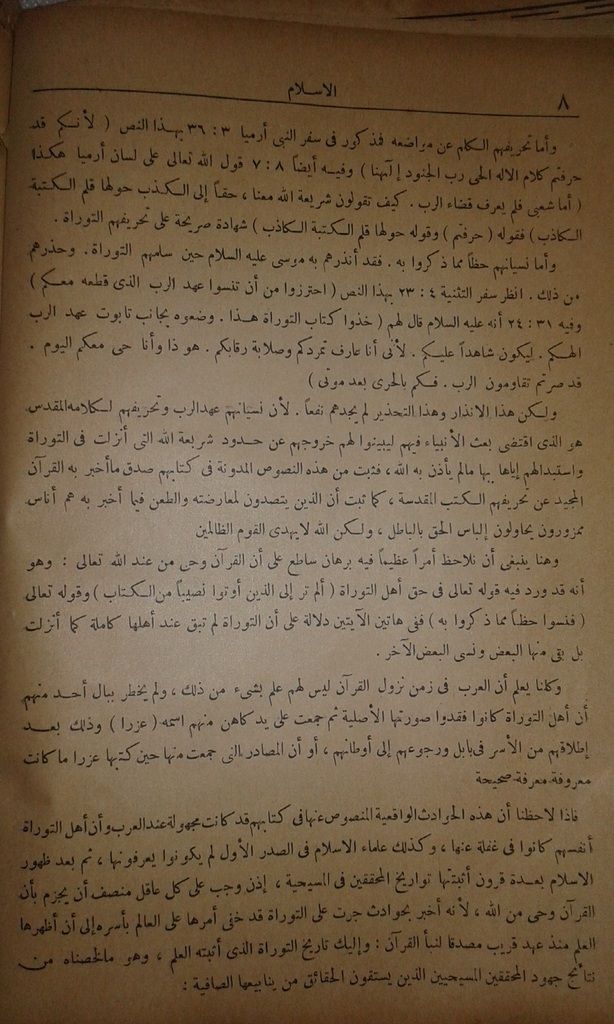 ٨
الاسلام
وأما تحريفهم الكلم عن مواضعه فمذكور فى سفر النبى أرميا ٣ : ٣٦ بهذا النص ( لأنكم قد
حرفتم كلام الاله الحى رب الجنود إلهنا ) وفيه أيضاً ٨ : ٧ قول الله تعالى على لسان أرميا هكذا
( أما شعبى فلم يعرف قضاء الرب . كيف تقولون شريعة الله معنا ، حقاً إلى الكذب حولها قلم الكتبة
الكاذب ) فقوله ( حرفتم ) وقوله حولها قلم الكتبة الكاذب ) شهادة صريحة على تحريفهم التوراة .
وأما نسيانهم حظاً مما ذكروا به . فقد أنذرهم به موسى عليه السلام حين سلمهم التوراة . وحذرهم
من ذلك . انظر سفر التثنية ٤ : ٢٣ بهذا النص ( احترزوا من أن تنسوا عهد الرب الذى قطعه معكم )
وفيه ٣١ : ٢٤ أنه عليه السلام قال لهم ( خذوا كتاب التوراة هذا . وضعوه بجانب تابوت عهد الرب
الهكم . ليكون شاهداً عليكم . لأنى أنا عارف تمردكم وصلابة رقابكم . هو ذا وأنا حى معكم اليوم .
قد صرتم تقاومون الرب . فكم بالحرى بعد موتى )
ولكن هذا الانذار وهذا التحذير لم يجدهم نفعاً . لأن نسيانهم عهد الرب وتحريفهم لكلامه المقدس
هو الذى اقتضى بعث الأنبياء فيهم ليبينوا لهم خروجهم عن حدود شريعة الله التى أنزلت فى التوراة
واستبدالهم إياها بها مالم يأذن به الله ، فثبت من هذه النصوص المدونة فى كتابهم صدق ما أخبر به القرآن
المجيد عن تحريفهم الكتب المقدسة ، كما ثبت أن الذين يتصدون لمعارضته والطعن فيما أخبر به هم أناس
ممزورون يحاولون إلباس الحق بالباطل ، ولكن الله لا يهدى القوم الظالمين
وهنا ينبغى أن نلاحظ أمراً عظيماً فيه برهان ساطع على أن القرآن وحى من عند الله تعالى : وهو
أنه قد ورد فيه قوله تعالى فى حق أهل التوراة ( ألم تر إلى الذين أوتوا نصيباً من الكتاب ) وقوله تعالى
( فنسوا حظاً مما ذكروا به ) ففى هاتين الآيتين دلالة على أن التوراة لم تبق عند أهلها كاملة كما أنزلت
بل بقى منها البعض ونسى البعض الآخر .
وكلنا يعلم أن العرب فى زمن نزول القرآن ليس لهم علم بشىء من ذلك ، ولم يخطر ببال أحد منهم
أن أهل التوراة كانوا فقدوا صورتها الأصلية ثم جمعت على يد كاهن منهم اسمه ( عزرا ) وذلك بعد
إطلاقهم من الأسر فى بابل ورجوعهم إلى أوطانهم ، أو أن المصادر التى جمعت منها حين كتبها عزرا ما كانت
معروفة معرفة صحيحة
فاذا لاحظنا أن هذه الحوادث الواقعية المنصوص عنها فى كتابهم قد كانت مجهولة عند العرب وأن أهل التوراة
أنفسهم كانوا فى غفلة عنها ، وكذلك علماء الاسلام فى الصدر الأول لم يكونوا يعرفونها ، ثم بعد ظهور
الاسلام بعدة قرون أثبتتها تواريخ المحققين فى المسيحية ، إذن وجب على كل عاقل منصف أن يجزم بأن
القرآن وحى من الله ، لأنه أخبر بحوادث جرت على التوراة قد خفى أمرها على العالم بأسره إلى أن أظهرها
العلم منذ عهد قريب مصدقا لنبأ القرآن : وإليك تاريخ التوراة الذى أثبته العلم ، وهو مالخصناه من
نتائج جهود المحققين المسيحيين الذين يستقون الحقائق من ينابيعها الصافية :